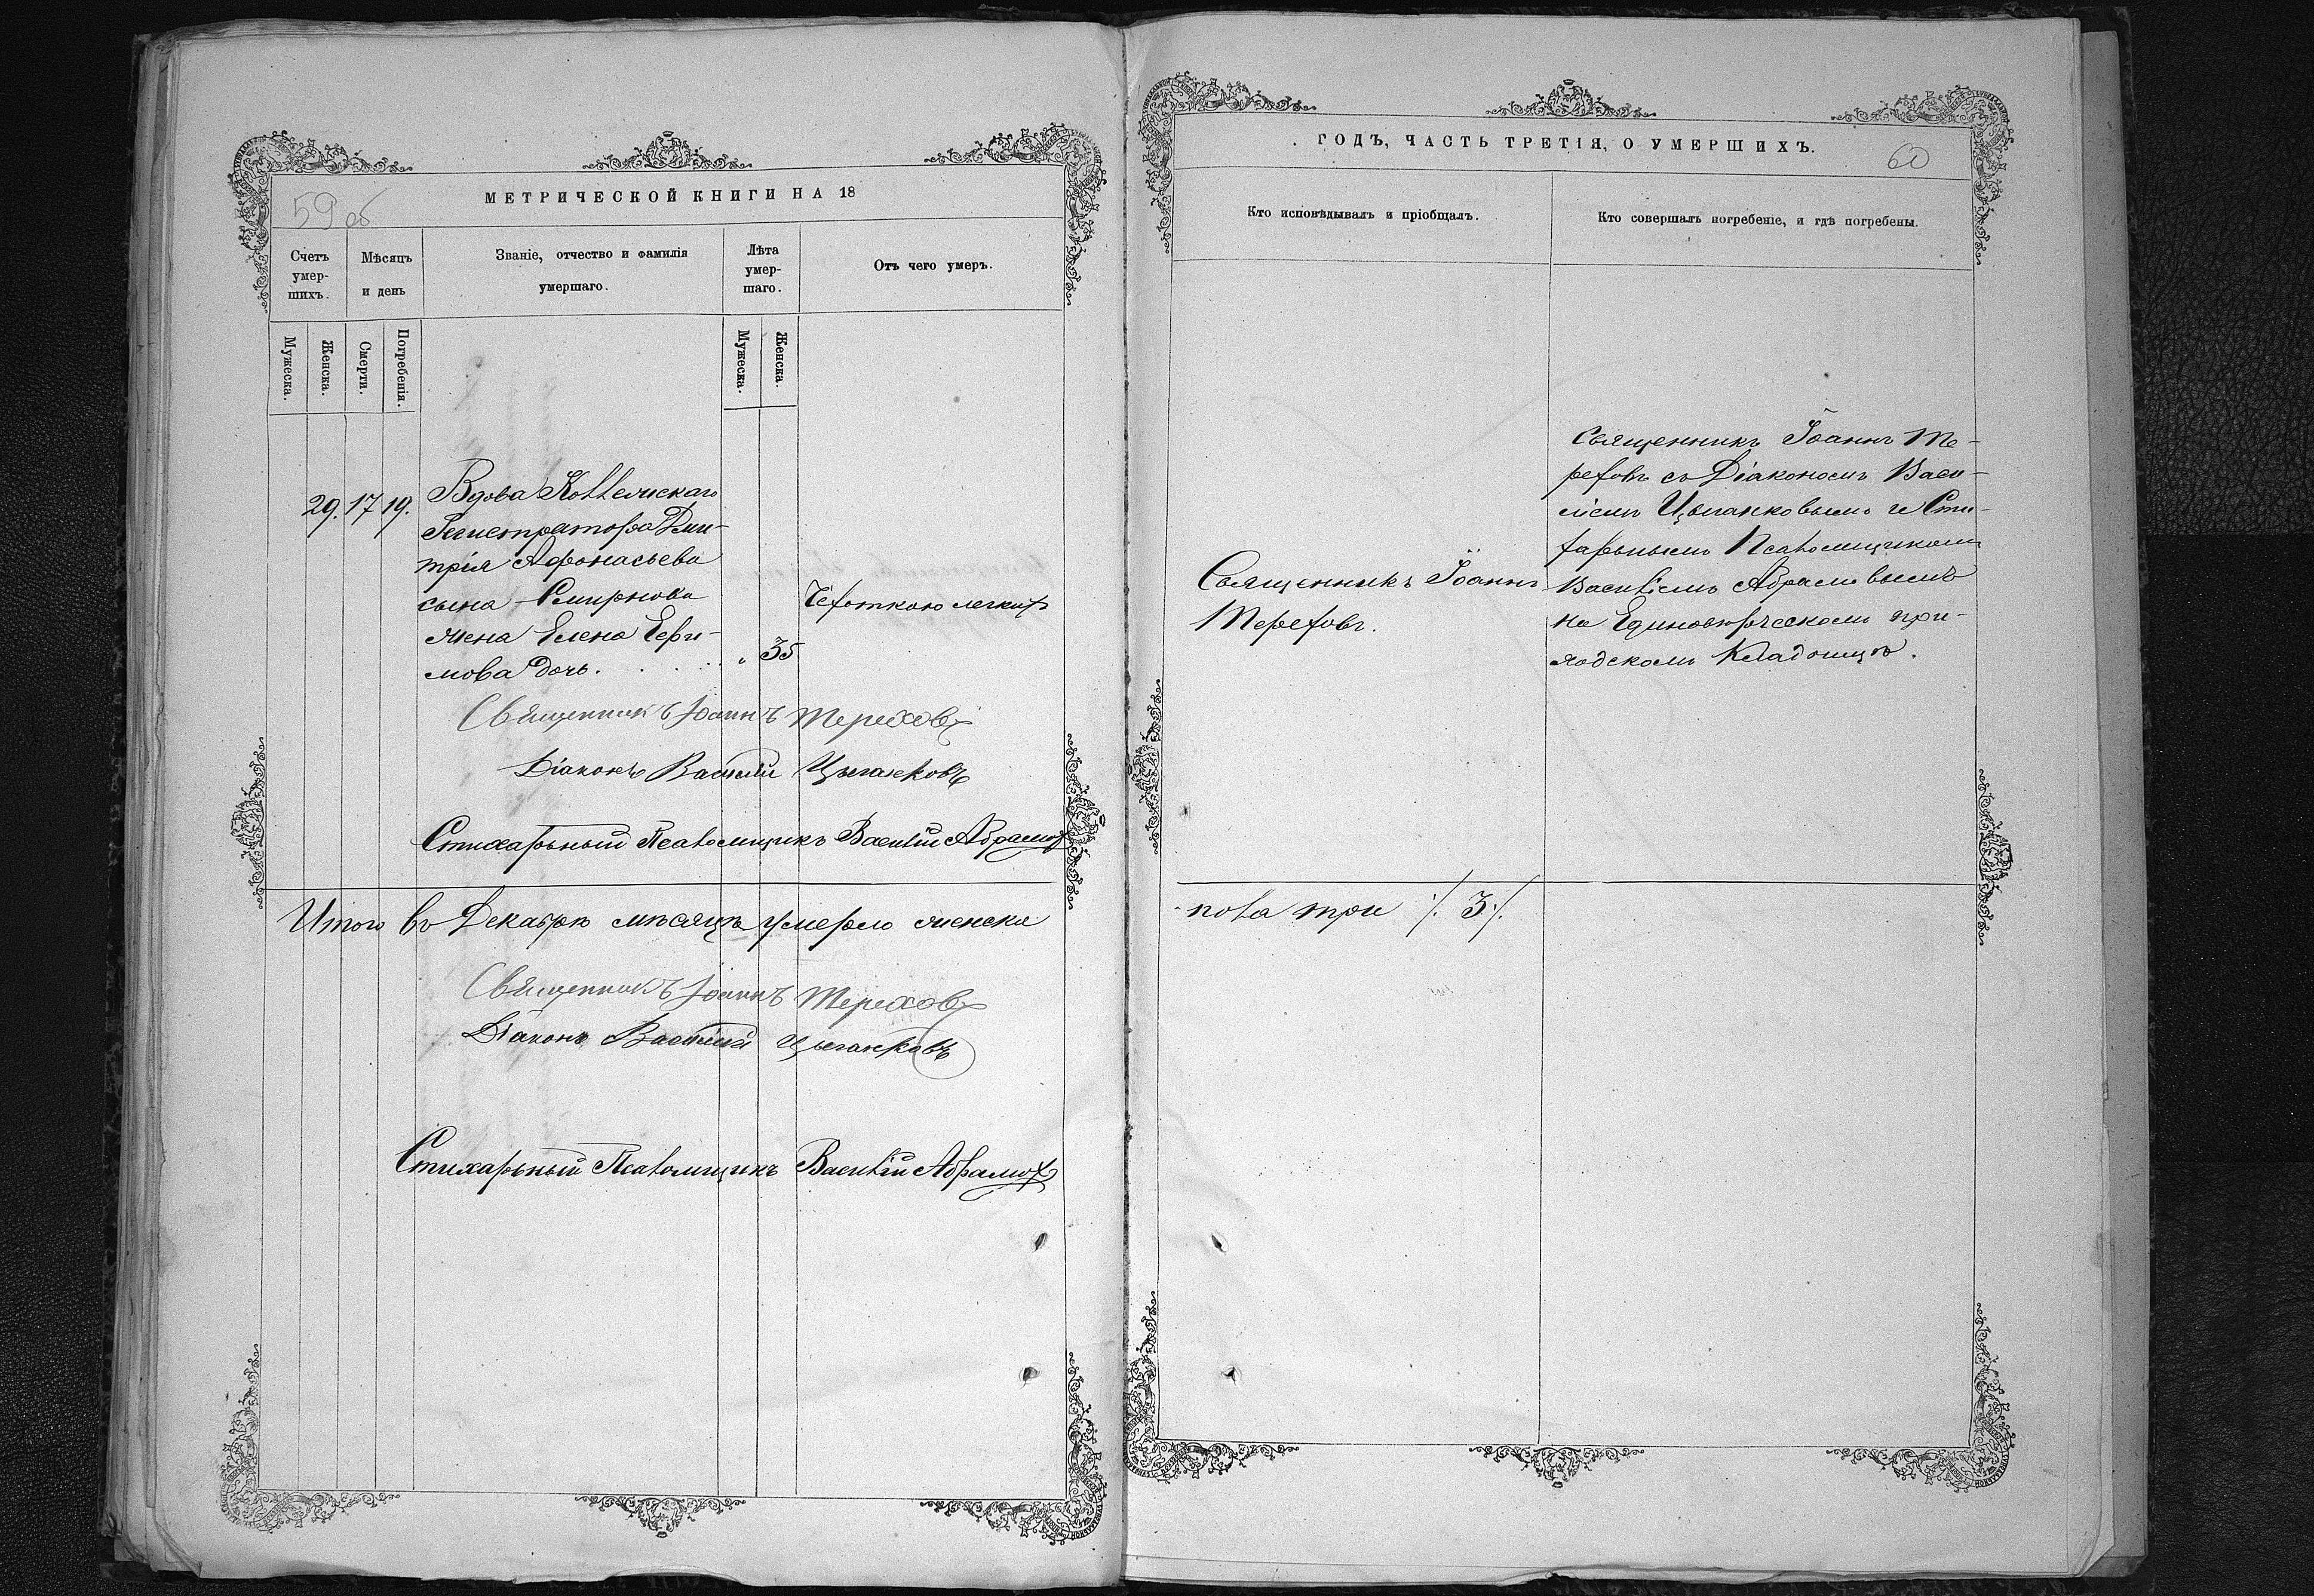 59 об
МЕТРИЧЕСКОЙ КНИГИ НА 18
Счетъ умер-шихъ.
Мѣсяцъ и день
Званіе, отчество и фамилія умершаго.
Лѣта умер-шаго.
Отъ чего умеръ.
Мужеска.
Женска.
Смерти.
Погребенія.
Мужеска.
Женска.
29. 17 19.
Вдова Коллежскаго
Регистратора Дми-
трія Афонасьева
сына Смирнова
жена Елена Ефи-
мова дочь. . . . . . „ 35
Чехоткою легких
Священникъ Іоаннъ Тереховъ
Діаконъ Василій Цыганковъ
Стихарный Псаломщикъ Василій Абрамов
Итого въ Декабрѣ мѣсяцѣ умерло женска
Священникъ Іоаннъ Тереховъ
Діаконъ Василій Цыганковъ
Стихарный Псаломщикъ Василій Абрамов
ГОДЪ, ЧАСТЬ ТРЕТІЯ, О УМЕРШИХЪ.
60
Кто исповѣдывалъ и пріобщалъ.
Кто совершалъ погребеніе, и гдѣ погребены.
Священникъ Іоаннъ
Тереховъ.
Священникъ Іоаннъ Те-
реховъ съ Діакономъ Васи-
ліемъ Цыганковымъ и Сти-
харнымъ Псаломщикомъ
Василіемъ Абрамовымъ
на Единовѣрческомъ при-
ходскомъ Кладбищѣ.
пола три ./. 3 ./.